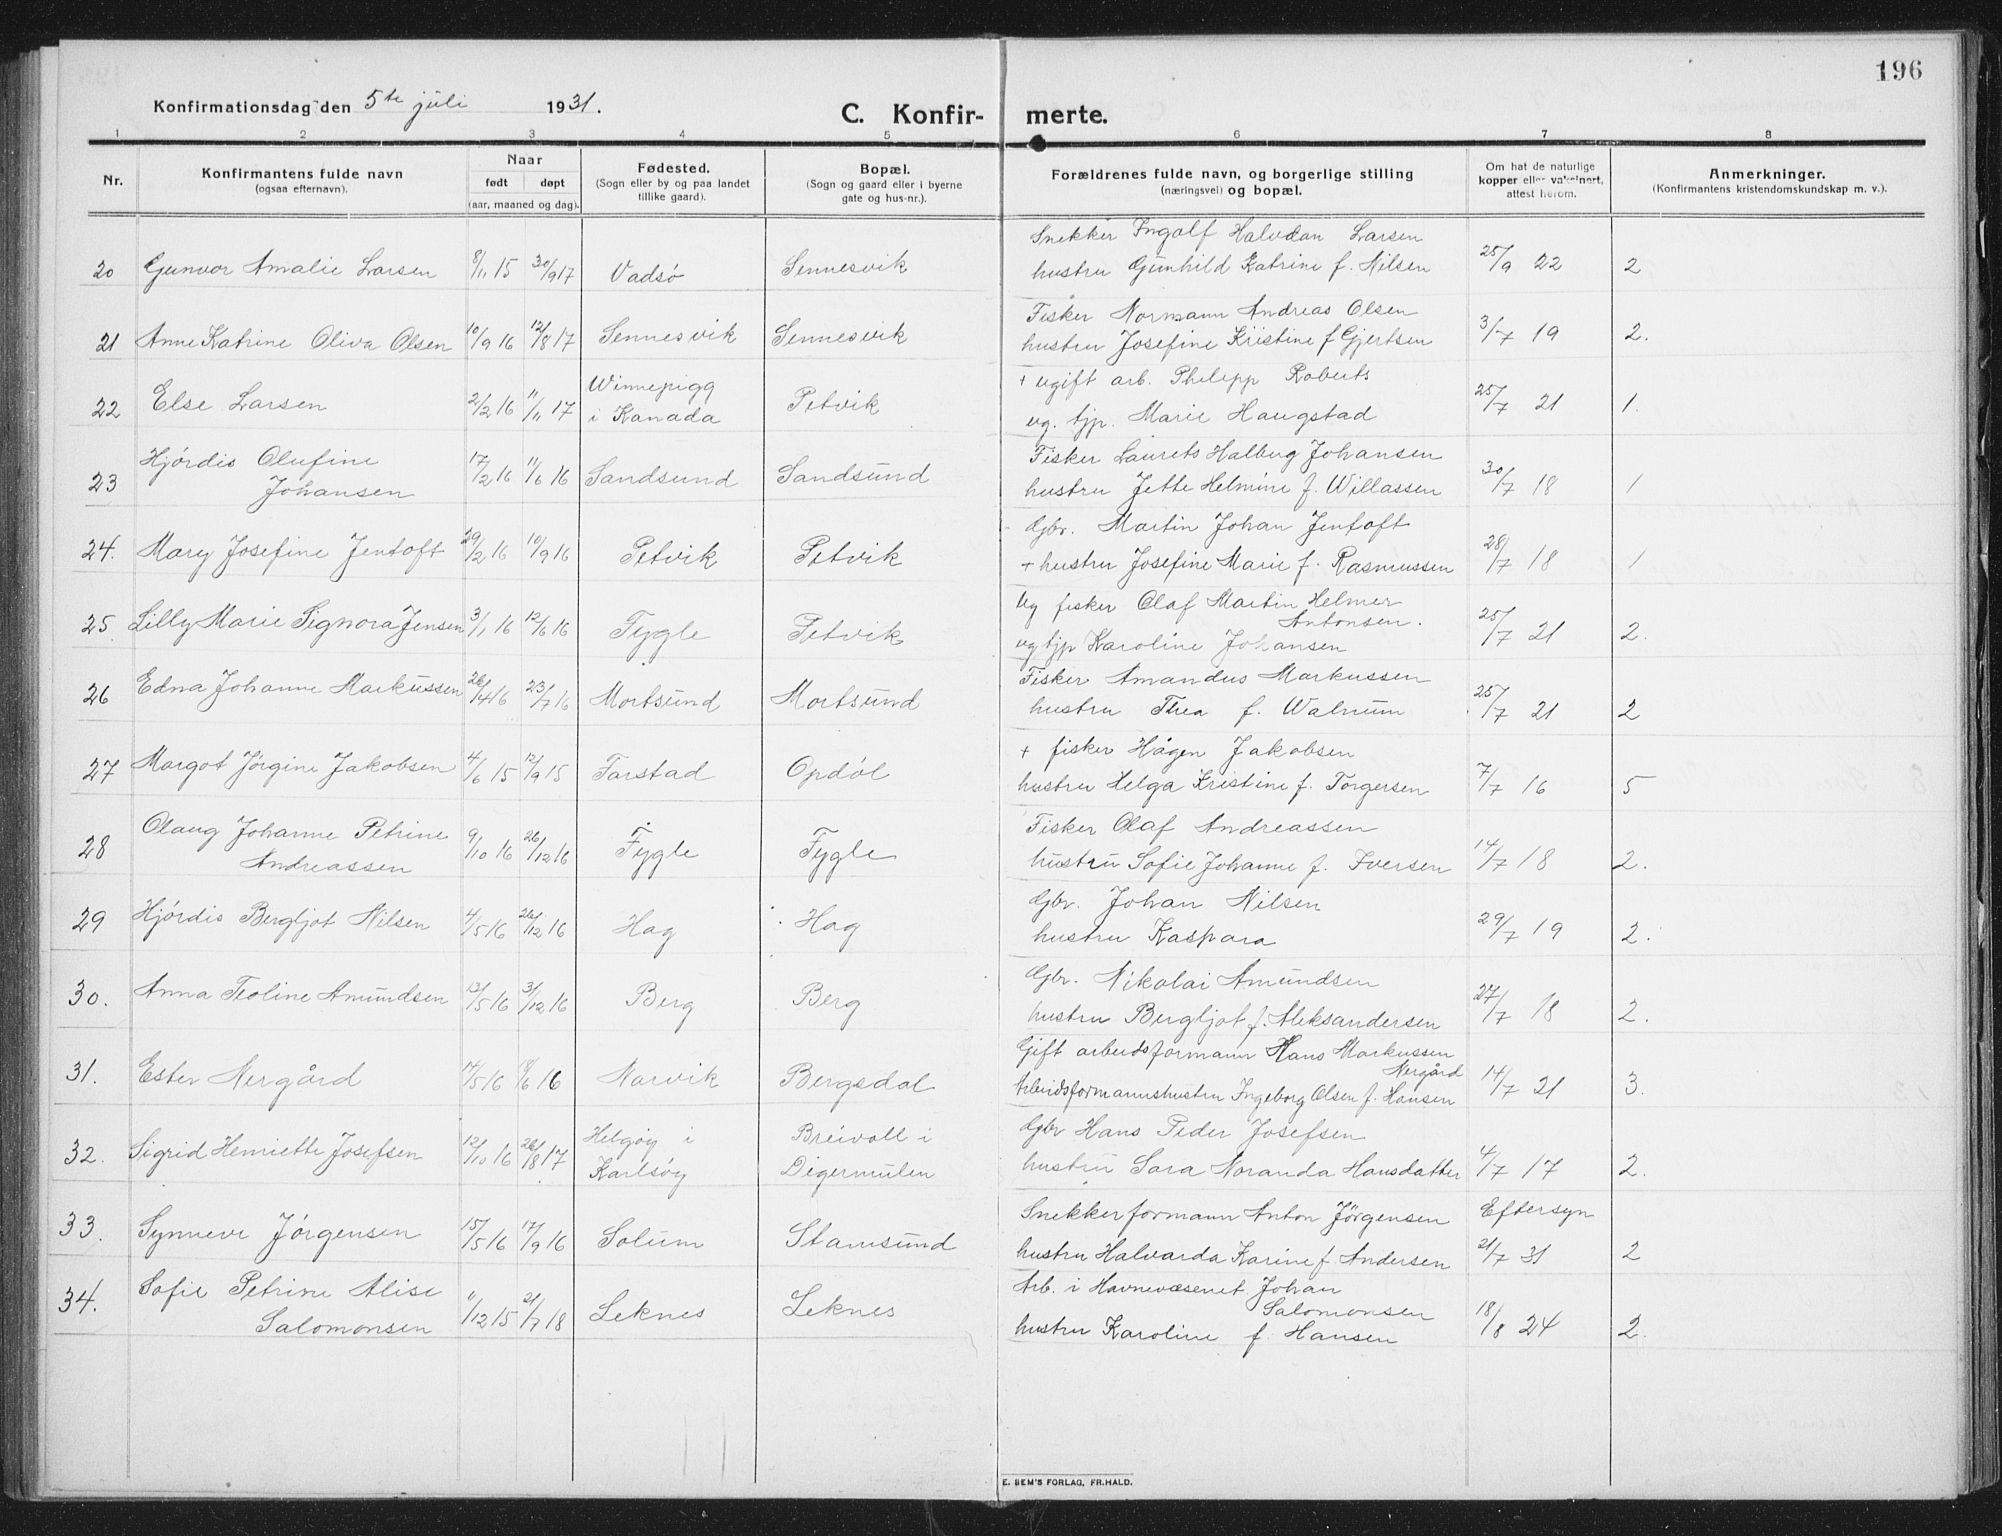 196
Konfirmationsdag den 5te juli 1931.
C. Konfir- merte.
1 2 3 4 5 6 7 8
Nr. Konfirmantens fulde navn (ogsaa efternavn). Naar født døpt (aar, maaned og dag). Fødested. (Sogn eller by og paa landet tillike gaard). Bopæl. (Sogn og gaard eller i byerne gate og hus-nr.). Forældrenes fulde navn, og borgerlige stilling (næringsvei) og bopæl. Om hat de naturlige kopper eller vaksinert, attest herom. Anmerkninger. (Konfirmantens kristendomskundskap m. v.).
Snekker Ingolf Halvdan Larsen
20 Gunvor Amalie Larsen 8/11 15 30/9 17 Vadsø Sennesvik hustru Gunhild Katrine f. Nilsen 25/9 22 2
Fisker Normann Andreas Olsen
21 Anne Katrine Oliva Olsen 10/9 16 12/8 17 Sennesvik Sennesvik hustru Josefine Kristine f Gjertsen 3/7 19 2.
Winnepigg + ugift arb. Philepp Roberts
22 Else Larsen 2/2 16 11/11 17 i Kanada Petvik ug. tjp. Marie Haugstad 25/7 21 1.
Hjórdis Olufine Fisker Laurets Halberg Johansen
23 Johansen 17/2 16 11/6 16 Sandsund Sandsund hustru Jette Helmine f. Willassen 30/7 18 1
Gbr. Martin Johan Jentoft
24. Mary Josefine Jentoft 29/2 16 10/9 16 Petvik Petvik + hustru Josefine Marie f. Rasmussen 28/7 18 1
Ug fisker Olaf Martin Helmer
Antonsen.
25. Lilly Marie Signora Jensen 3/1 16 12/6 16 Fygle Petvik ug tjp Karoline Johansen 25/7 21 2.
Fisker Amandus Markussen
26 Edna Johanne Markussen 26/4 16 23/7 16 Mortsund Mortsund hustru Thea f. Walnum 25/7 21 2
+ fisker Hågen Jakobsen
27 Margot Jørgine Jakobsen 4/6 15 12/9 15 Farstad Opdøl hustru Helga Kristine f. Torgersen 7/7 16 5
Olaug Johanne Petrine Fisker Olaf Andreassen
28 Andreassen 9/10 16 26/12 16 Fygle Fygle hustru Sofie Johanne f. Iversen 14/7 18 2.
Gbr. Johan Nilsen
29 Hjórdis Bergljot Nilsen 4/5 16 26/12 16 Hag Hag hustru Kaspara 29/7 19 2.
Gbr. Nikolai Amundsen
30. Anna Teoline Amundsen 13/5 16 31/12 16 Berg Berg hustru Bergljot f. Aleksandersen 27/7 18 2.
Gift arbeidsformann Hans Markussen
Nergård
31. Ester Nergård 17/5 16 18/6 16 Narvik Bergsdal Arbeidsformannshustru Ingeborg Olsen f. Hansen 14/7 21 3.
Helgøy i Breivoll i Gbr Hans Peder Josefsen
32. Sigrid Henriette Josefsen 12/10 16 26/8 17 Karlsøy Digermulen hustru Sara Noranda Hansdatter 4/7 17 2.
Snekkerformann Anton Jørgensen Eftersyn
33. Synneve Jørgensen 15/5 16 17/9 16 Solum Stamsund hustru Halvarda Karine f. Andersen 21/7 31 2
Sofie Petrine Alise Arb. i Havnevæsenet Johan
Salomonsen
34. Salomonsen 11/12 15 21/7 18 Leknes Leknes hustru Karoline f. Hansen 18/8 24 2.
E. SEM'S FORLAG, FR.HALD.